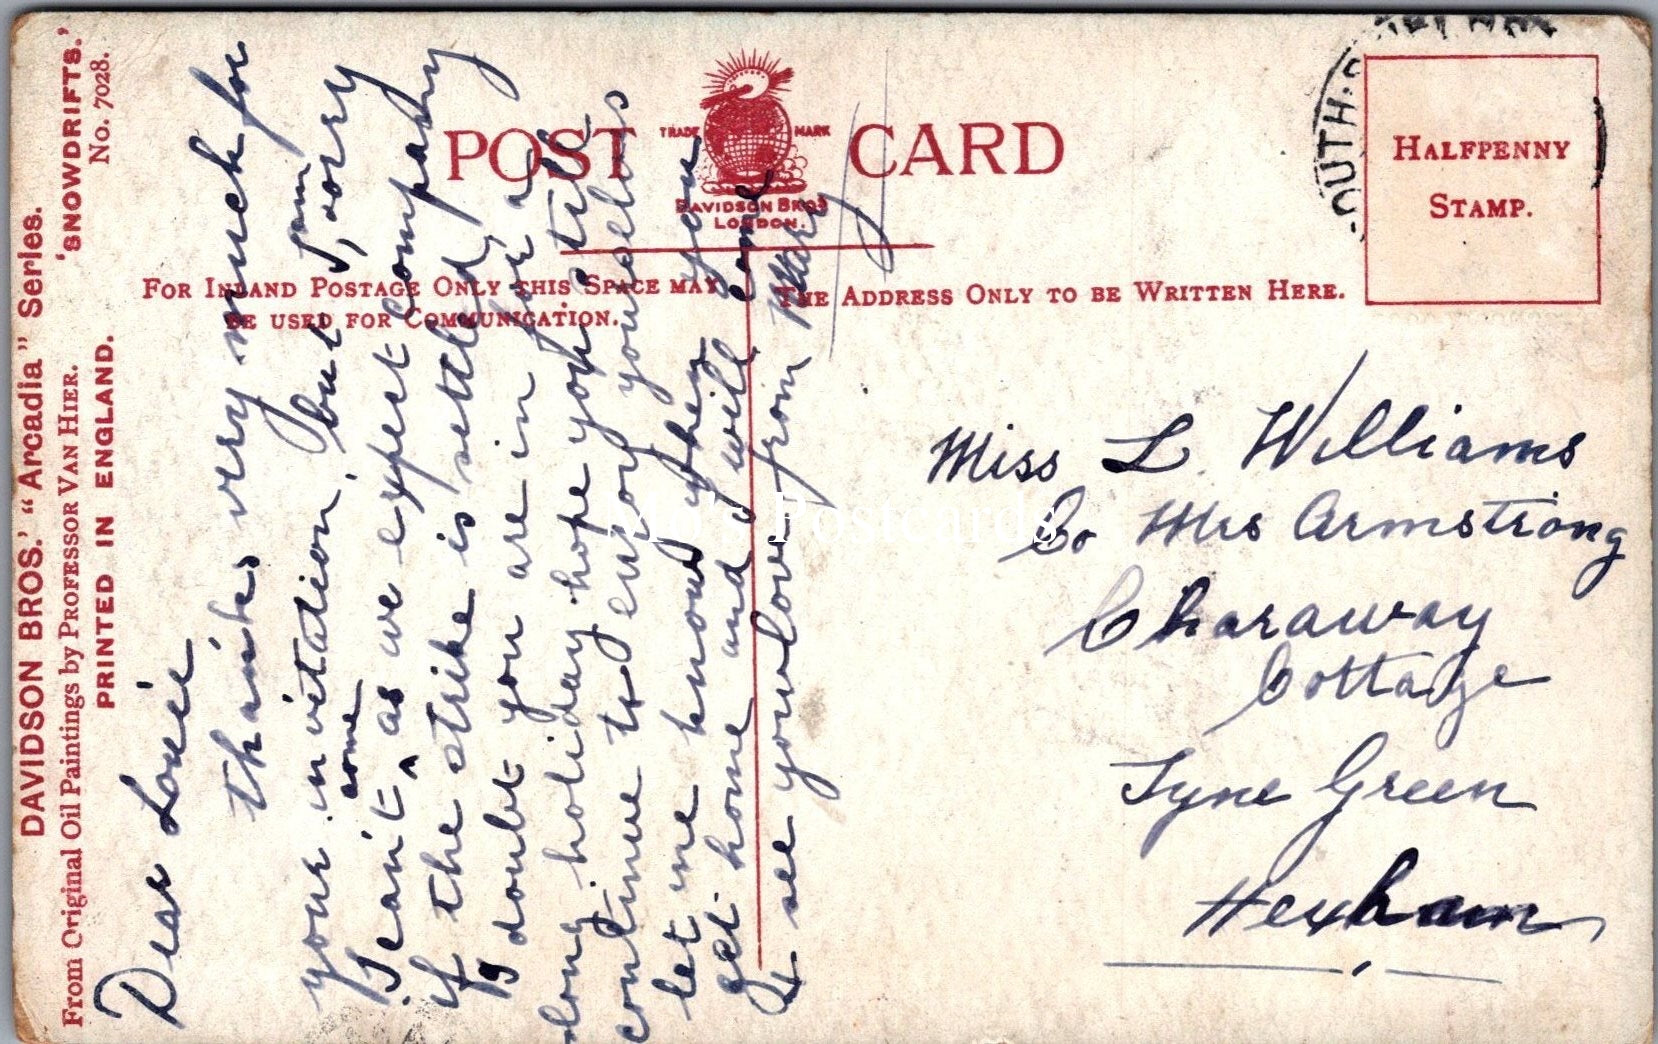 DAVIDSON BROS.' "Arcadia" Series. 'SNOWDRIFTS.'
From Original Oil Paintings by PROFESSOR VAN HIER. No. 7028.
PRINTED IN ENGLAND.
POST CARD
TRADE MARK
DAVIDSON BROS
LONDON.
FOR INLAND POSTAGE ONLY THIS SPACE MAY
BE USED FOR COMMUNICATION.
THE ADDRESS ONLY TO BE WRITTEN HERE.
HALFPENNY
STAMP.
OUTH
Dear Louie
thanks very much for
your invitation, but I am sorry
I can't come as we expect company
if the strike is settled,
I doubt you are in for a
long holiday hope you still
continue to enjoy yourselves
let me know when you
get home and will come
& see you love from Mary
Miss L Williams
Co Mrs Armstrong
Charaway
Cottage
Tyne Green
Hexham